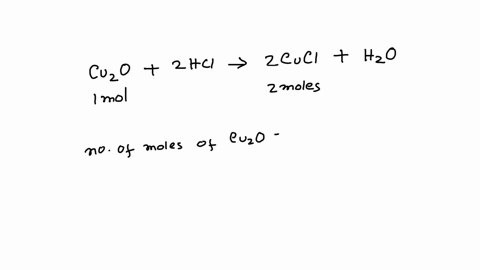 Cu₂O + 2HCl → 2CuCl + H₂O
1mol 2moles
no. of moles of Cu₂O -